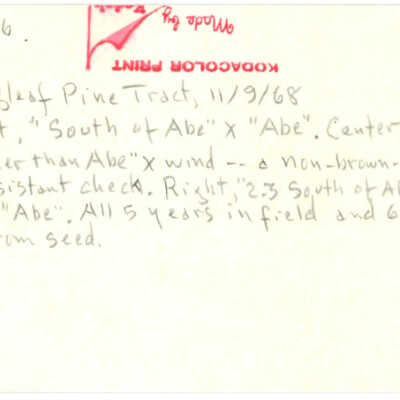 6.
Made by
KODACOLOR PRINT
gleaf Pine Tract, 11/9/68
t, "South of Abe" x "Abe". Center
er than Abe" x wind -- a non-brown-
sistant check. Right, "2.3 South of Ab
"Abe". All 5 years in field and 6
om seed.